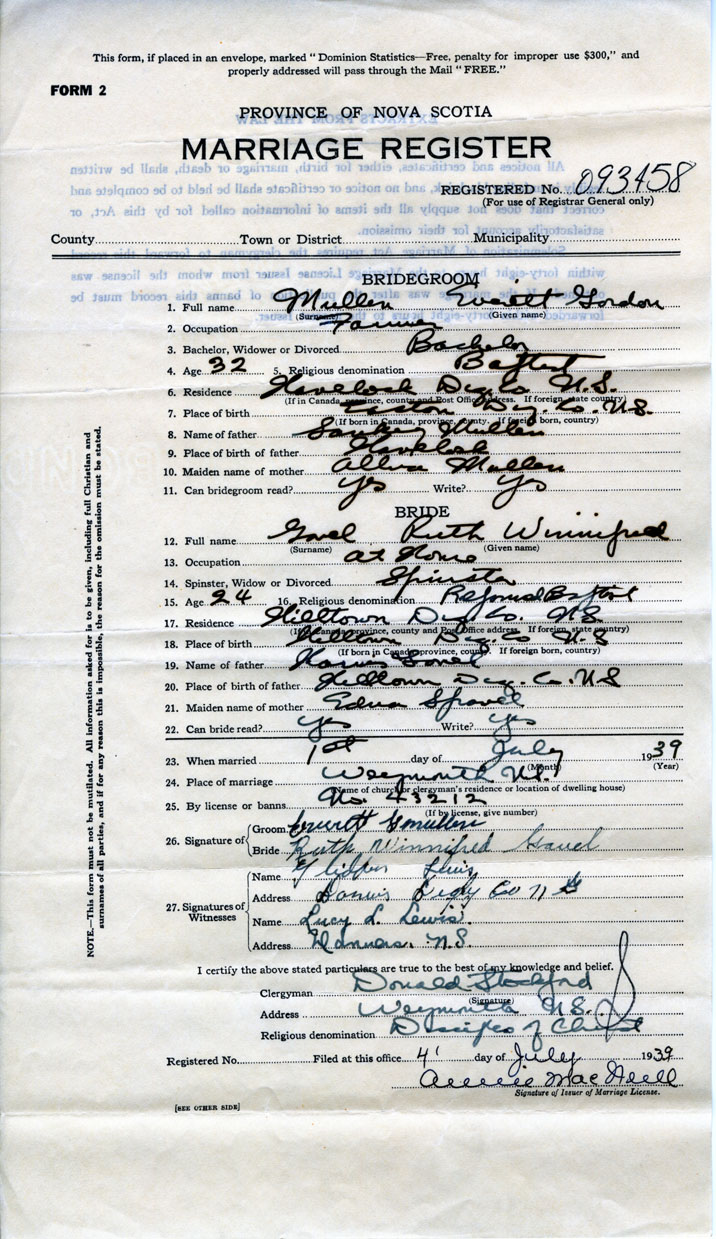 This form, if placed in an envelope, marked "Dominion Statistics—Free, penalty for improper use $300," and
properly addressed will pass through the Mail "FREE."
FORM 2
PROVINCE OF NOVA SCOTIA
MARRIAGE REGISTER
REGISTERED No. 093458
(For use of Registrar General only)
County Town or District Municipality
BRIDEGROOM
1. Full name Mullen Everett Gordon
(Surname) (Given name)
2. Occupation Farmer
3. Bachelor, Widower or Divorced Bachelor
4. Age 32 5. Religious denomination Baptist
6. Residence Havelock Dig. Co. N.S.
(If in Canada, province, county and Post Office address. If foreign state country)
7. Place of birth Easton Dig. Co. N.S.
(If born in Canada, province, county. If foreign born, country)
8. Name of father Mullen
9. Place of birth of father Havelock
10. Maiden name of mother Mullen
11. Can bridegroom read? Yes Write? Yes
BRIDE
12. Full name Gavel Ruth Winnifred
(Surname) (Given name)
13. Occupation at Home
14. Spinster, Widow or Divorced Spinster
15. Age 24 16. Religious denomination Reformed Baptist
17. Residence Hilltown Dig. Co. N.S.
(If in Canada, province, county and Post Office address. If foreign state country)
18. Place of birth Hilltown Dig. Co N.S
(If born in Canada province, county. If foreign born, country)
19. Name of father Gavel
20. Place of birth of father Hilltown Dig. Co. N.S
21. Maiden name of mother Edna
22. Can bride read? Yes Write? Yes
23. When married 1st day of July 1939
(Month) (Year)
24. Place of marriage Weymouth N.S.
(Name of church or clergyman's residence or location of dwelling house)
25. By license or banns No. 43212
(If by license, give number)
26. Signature of
Groom Everett G Mullen
Bride Ruth Winnifred Gavel
27. Signatures of Witnesses
Name Lewis
Address Digby Co N S
Name Lucy L. Lewis.
Address N.S
I certify the above stated particulars are true to the best of my knowledge and belief.
Clergyman Donald Stockford
(Signature)
Address Weymouth N.S.
Religious denomination Disciples of Christ
Registered No. Filed at this office 4 day of July 1939
Annie MacNeill
Signature of Issuer of Marriage License.
[SEE OTHER SIDE]
NOTE.—This form must not be mutilated. All information asked for is to be given, including full Christian and
surnames of all parties, and if for any reason this is impossible, the reason for the omission must be stated.